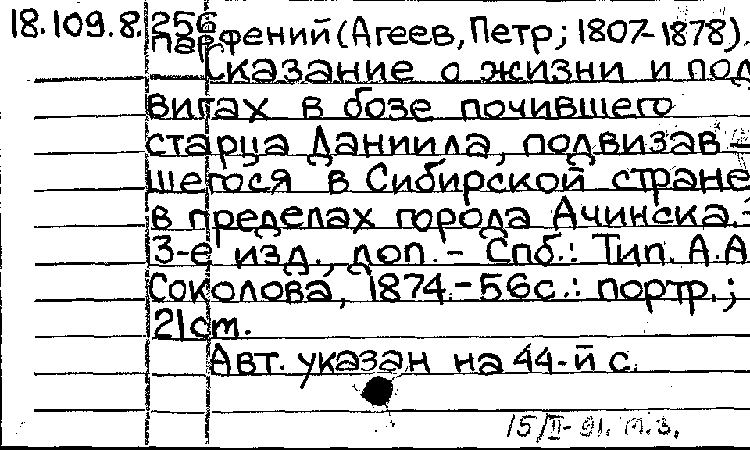 18.109.8.256
Парфений (Агеев, Петр; 1807-1878).
Сказание о жизни и под
вигах в бозе почившего
старца Даниила, подвизав-
шегося в Сибирской стране
в пределах города Ачинска.-
3-е изд., доп.- Спб.: Тип. А.А.
Соколова, 1874.-56с.: портр.;
21см.
Авт. указан на 44-й с.
15/II-91. М.З.